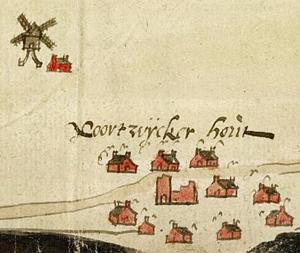 Noortwijcker hout